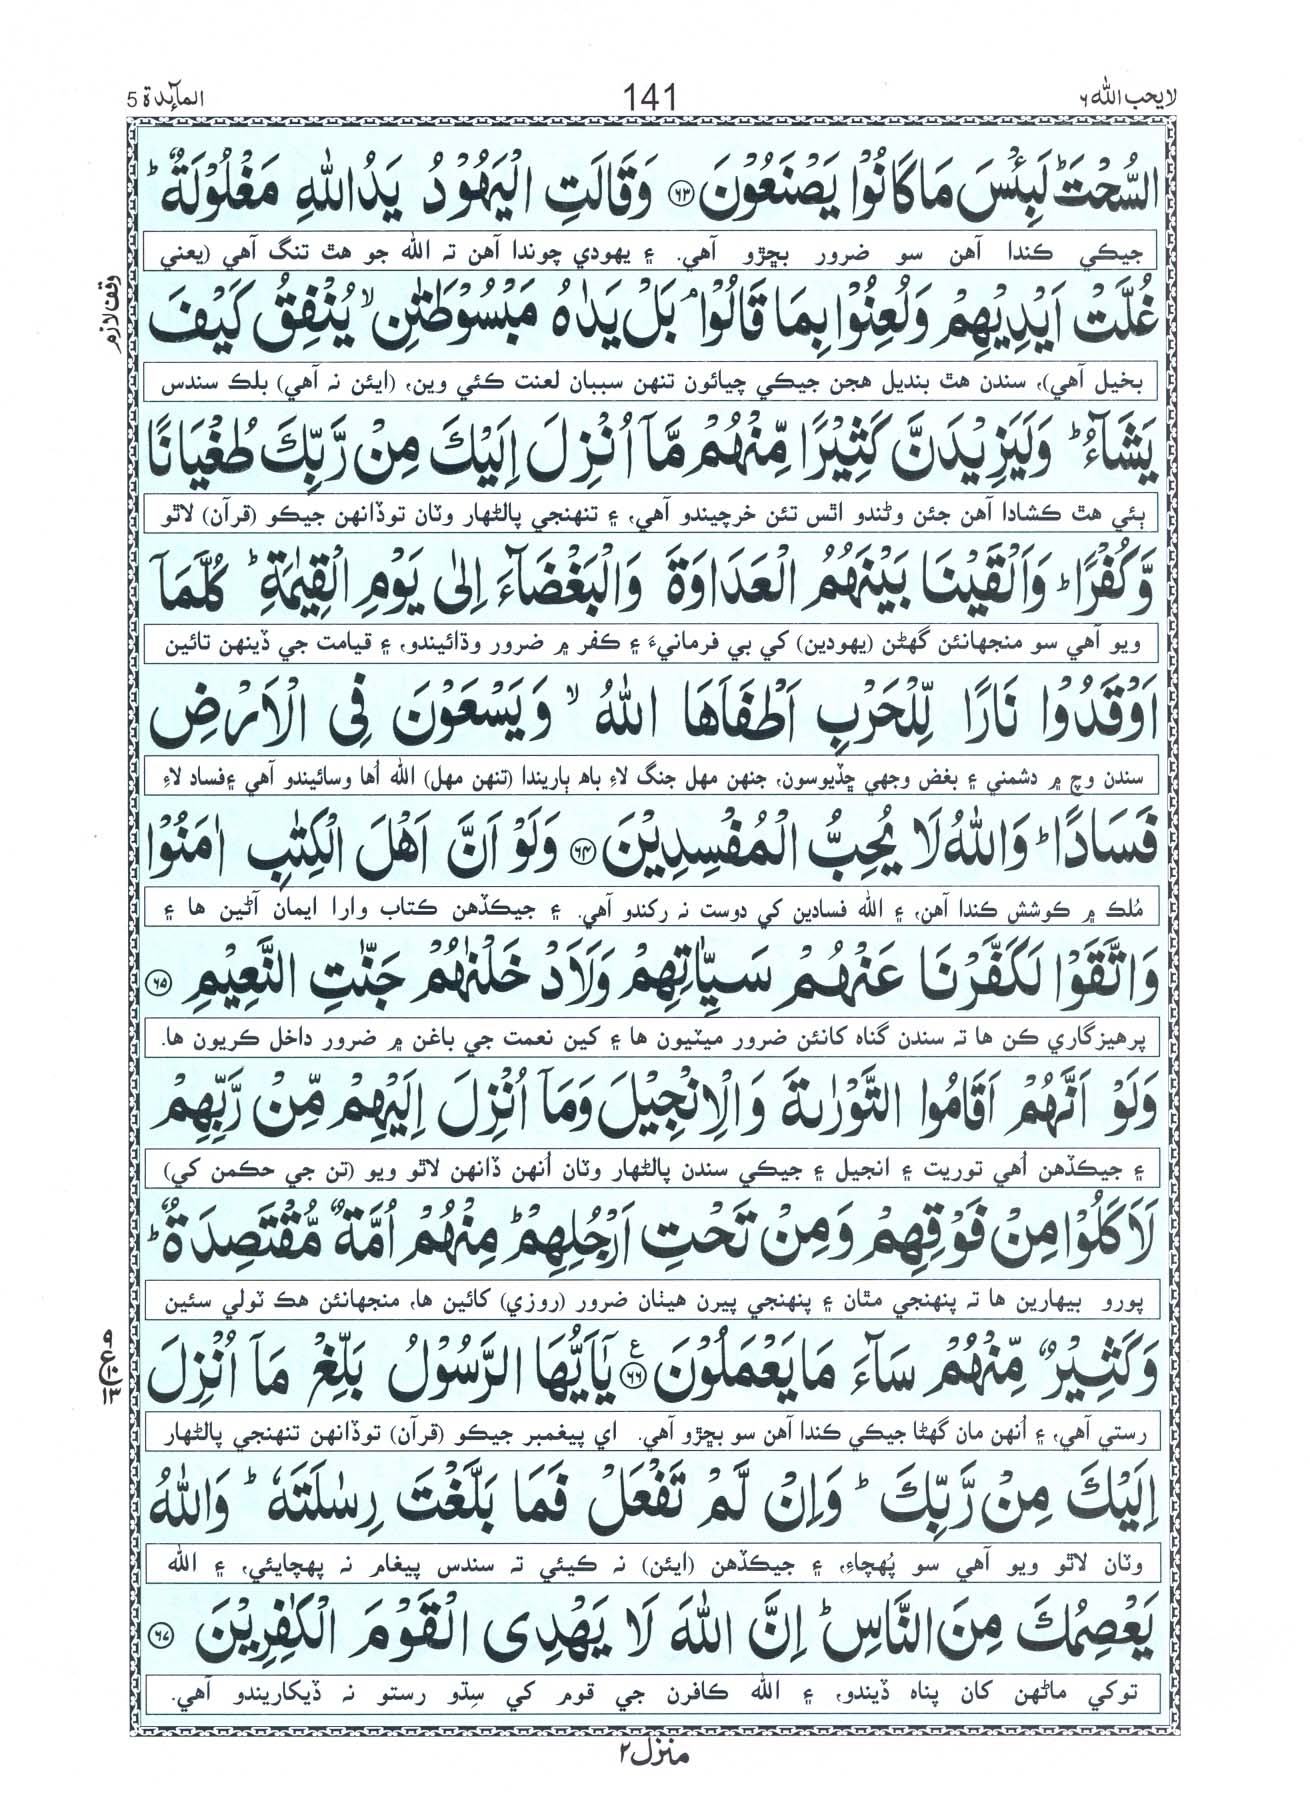 لا یحب الله ٦
141
المآئدة 5
السُّحْتَ ؕ لَبِئْسَ مَا كَانُوْا یَصْنَعُوْنَ ۝۶۳ وَ قَالَتِ الْیَهُوْدُ یَدُ اللّٰهِ مَغْلُوْلَةٌ ؕ
جيڪي ڪندا آهن سو ضرور بڇڙو آهي. ۽ يهودي چوندا آهن تہ الله جو هٿ تنگ آهي (يعني
غُلَّتْ اَیْدِیْهِمْ وَ لُعِنُوْا بِمَا قَالُوْا ۘ بَلْ یَدٰهُ مَبْسُوْطَتٰنِ ۙ یُنْفِقُ كَیْفَ
وقف لازم
بخيل آهي)، سندن هٿ بنديل هجن جيڪي چيائون تنهن سببان لعنت ڪئي وين، (ايئن نہ آهي) بلڪ سندس
یَشَآءُ ؕ وَ لَیَزِیْدَنَّ كَثِیْرًا مِّنْهُمْ مَّاۤ اُنْزِلَ اِلَیْكَ مِنْ رَّبِّكَ طُغْیَانًا
ٻئي هٿ ڪشادا آهن جئن وڻندو اٿس تئن خرچيندو آهي، ۽ تنهنجي پالڻهار وٽان توڏانهن جيڪو (قرآن) لاٿو
وَّ كُفْرًا ؕ وَ اَلْقَیْنَا بَیْنَهُمُ الْعَدَاوَةَ وَ الْبَغْضَآءَ اِلٰی یَوْمِ الْقِیٰمَةِ ؕ كُلَّمَاۤ
ويو آهي سو منجهانئن گهڻن (يهودين) کي بي فرمانيءَ ۽ ڪفر ۾ ضرور وڌائيندو، ۽ قيامت جي ڏينهن تائين
اَوْقَدُوْا نَارًا لِّلْحَرْبِ اَطْفَاَهَا اللّٰهُ ۙ وَ یَسْعَوْنَ فِی الْاَرْضِ
سندن وچ ۾ دشمني ۽ بغض وجهي ڇڏيوسون، جنهن مهل جنگ لاءِ باھ ٻاريندا (تنهن مهل) الله اُها وسائيندو آهي ۽فساد لاءِ
فَسَادًا ؕ وَ اللّٰهُ لَا یُحِبُّ الْمُفْسِدِیْنَ ۝۶۴ وَ لَوْ اَنَّ اَهْلَ الْكِتٰبِ اٰمَنُوْا
مُلڪ ۾ ڪوشش ڪندا آهن، ۽ الله فسادين کي دوست نہ رکندو آهي. ۽ جيڪڏهن ڪتاب وارا ايمان آڻين ها ۽
وَ اتَّقَوْا لَكَفَّرْنَا عَنْهُمْ سَیِّاٰتِهِمْ وَ لَاَدْخَلْنٰهُمْ جَنّٰتِ النَّعِیْمِ ۝۶۵
پرهيزگاري ڪن ها تہ سندن گناه کانئن ضرور ميٽيون ها ۽ کين نعمت جي باغن ۾ ضرور داخل ڪريون ها.
وَ لَوْ اَنَّهُمْ اَقَامُوا التَّوْرٰىةَ وَ الْاِنْجِیْلَ وَ مَاۤ اُنْزِلَ اِلَیْهِمْ مِّنْ رَّبِّهِمْ
۽ جيڪڏهن اُهي توريت ۽ انجيل ۽ جيڪي سندن پالڻهار وٽان اُنهن ڏانهن لاٿو ويو (تن جي حڪمن کي)
لَاَكَلُوْا مِنْ فَوْقِهِمْ وَ مِنْ تَحْتِ اَرْجُلِهِمْ ؕ مِنْهُمْ اُمَّةٌ مُّقْتَصِدَةٌ ؕ
پورو بيهارين ها تہ پنهنجي مٿان ۽ پنهنجي پيرن هيٺان ضرور (روزي) کائين ها، منجهانئن هڪ ٽولي سئين
وَ كَثِیْرٌ مِّنْهُمْ سَآءَ مَا یَعْمَلُوْنَ ۝۶۶ ع یٰۤاَیُّهَا الرَّسُوْلُ بَلِّغْ مَاۤ اُنْزِلَ
رستي آهي، ۽ اُنهن مان گهڻا جيڪي ڪندا آهن سو بڇڙو آهي. اي پيغمبر جيڪو (قرآن) توڏانهن تنهنجي پالڻهار
اِلَیْكَ مِنْ رَّبِّكَ ؕ وَ اِنْ لَّمْ تَفْعَلْ فَمَا بَلَّغْتَ رِسٰلَتَهٗ ؕ وَ اللّٰهُ
وٽان لاٿو ويو آهي سو پُهچاءِ، ۽ جيڪڏهن (ايئن) نہ ڪيئي تہ سندس پيغام نہ پهچايئي، ۽ الله
یَعْصِمُكَ مِنَ النَّاسِ ؕ اِنَّ اللّٰهَ لَا یَهْدِی الْقَوْمَ الْكٰفِرِیْنَ ۝۶۷
توکي ماڻهن کان پناه ڏيندو، ۽ الله ڪافرن جي قوم کي سِڌو رستو نہ ڏيکاريندو آهي.
منزل ۲